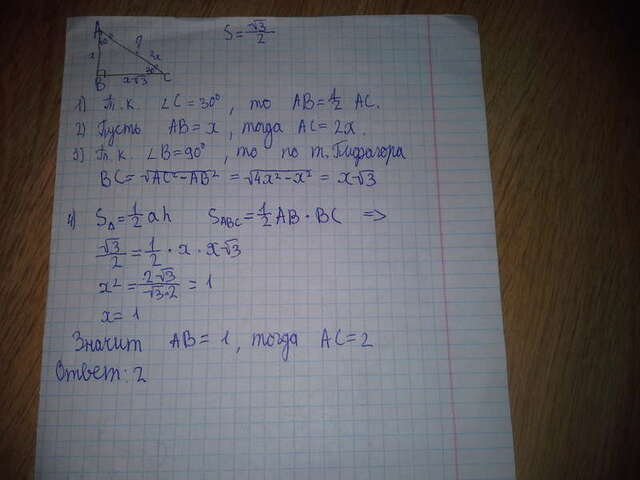 A
60°
?
x
2x
30°
B
x√3
C
S = √3/2
1) Т.к. ∠C = 30°, то AB = 1/2 AC.
2) Пусть AB = x, тогда AC = 2x.
3) Т.к. ∠B = 90°, то по т. Пифагора
BC = √AC² − AB² = √4x² − x² = x√3
4) S△ = 1/2 ah S ABC = 1/2 AB · BC =>
√3/2 = 1/2 · x · x√3
x² = 2√3/√3·2 = 1
x = 1
Значит AB = 1, тогда AC = 2
Ответ: 2